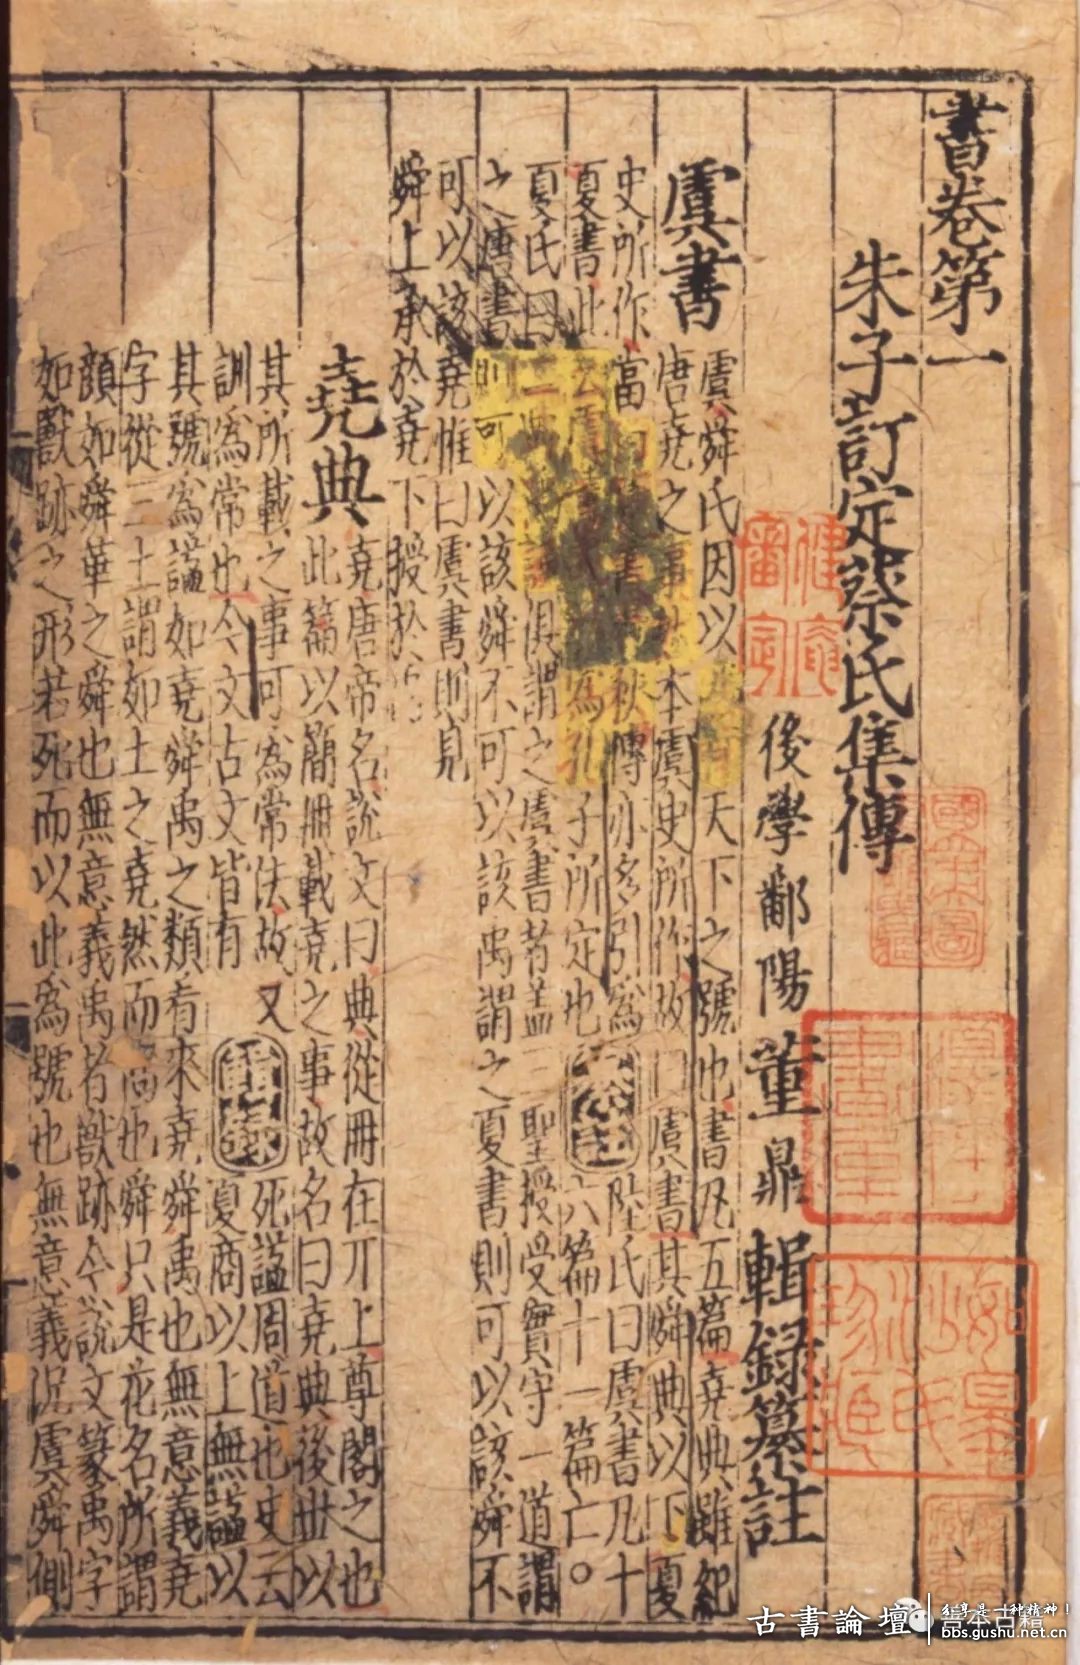 書卷第一
朱子訂定蔡氏集傳
後學鄱陽董鼎輯録纂註
虞書
虞舜氏因以爲有天下之號也書凡五篇堯典雖紀
唐堯之事然本虞史所作故曰虞書其舜典以下夏
史所作當曰夏書春秋傳亦多引爲
夏書此云虞書為孔子所定也
纂註
陸氏曰虞書凡十
六篇十一篇亡○
夏氏曰二典三謨俱謂之虞書者蓋三聖授受實守一道謂
之唐書則可以該舜不可以該禹謂之夏書則可以該舜不
可以該堯惟曰虞書則見
舜上承於堯下授於
堯典
堯唐帝名說文曰典從冊在丌上尊閣之也
此篇以簡冊載堯之事故名曰堯典後世以
其所載之事可爲常法故又
訓爲常也今文古文皆有
輯録
死諡周道也史云
夏商以上無諡以
其號爲諡如堯舜禹之類看來堯舜禹也無意義堯
字從三土謂如土之堯然而高也舜只是花名所謂
顔如舜華之舜也無意義禹者獸跡今說文篆禹字
如獸跡之形若死而以此爲號也無意義況虞舜側
古書論壇
善本古籍
分享是一种精神！
bbs.gushu.net.cn